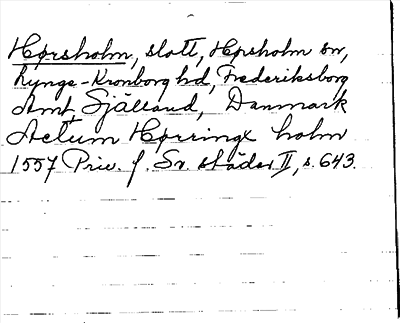 Hørsholm, slott, Hørsholm sn,
Lynge-Kronborg hd, Frederiksborg
Amt, Själland, Danmark
Actum Hørringx holm
1557 Priv. f. Sv. städer II, s. 643.